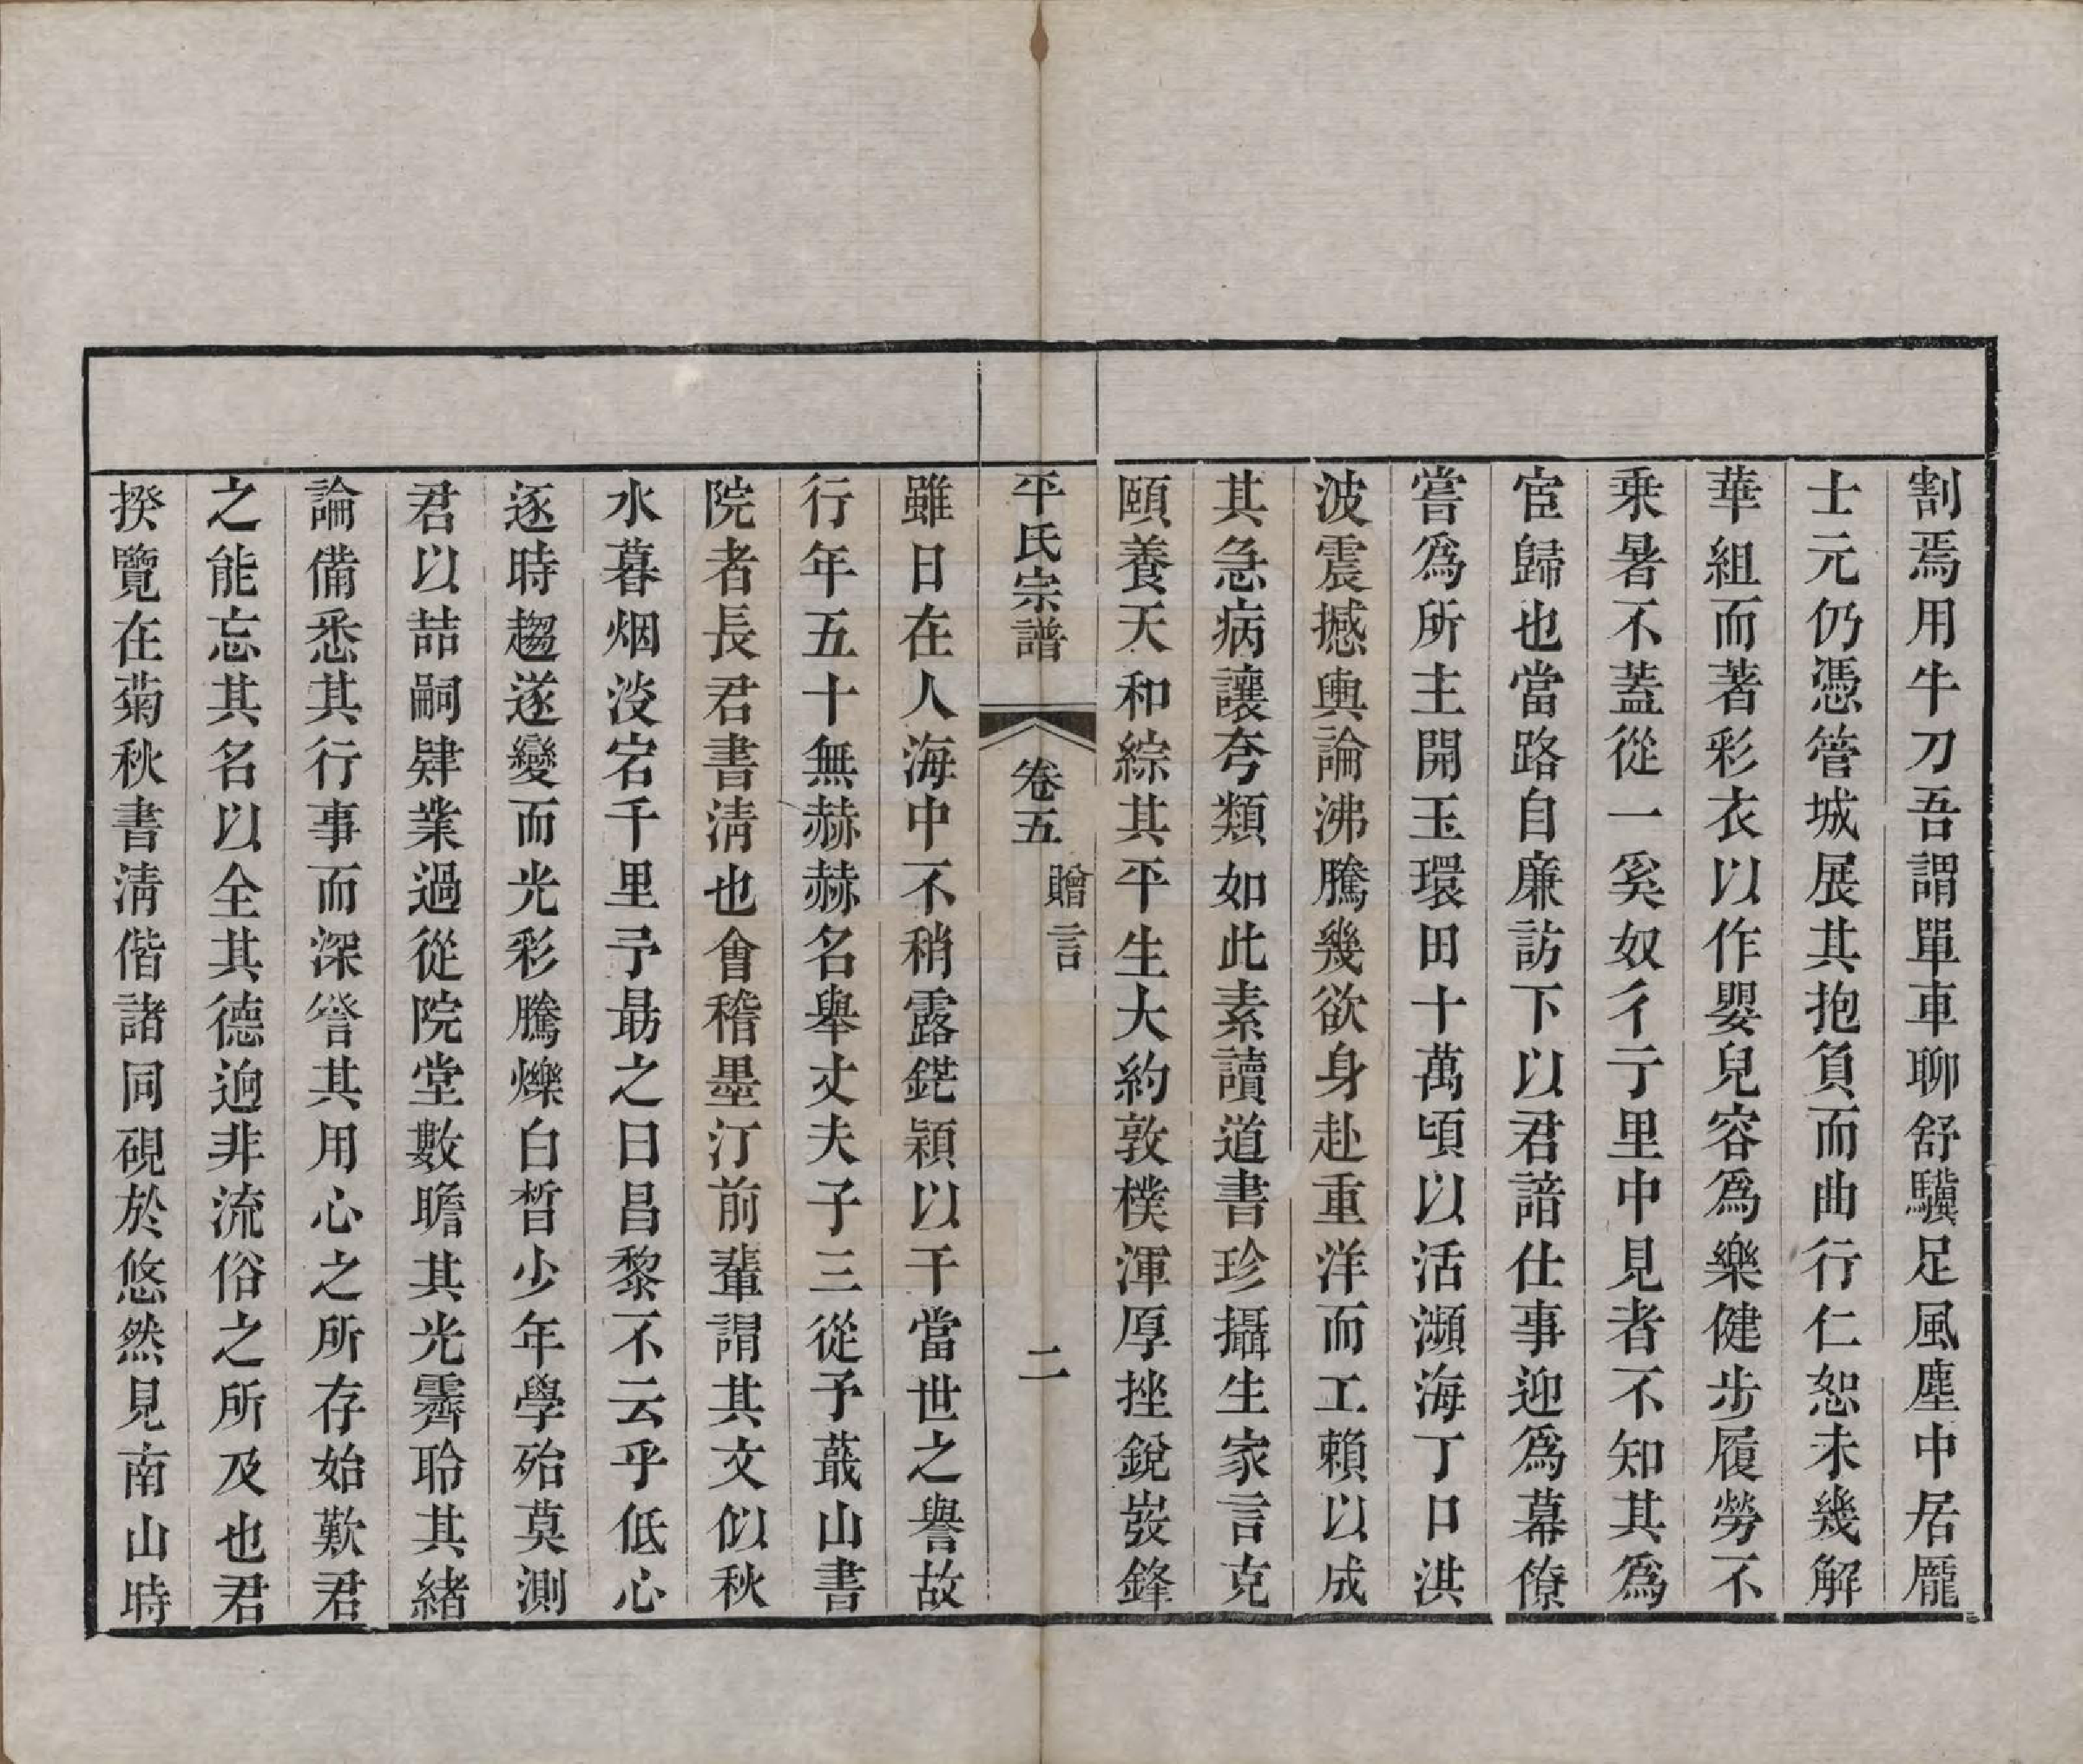 割焉用牛刀吾謂單車聊舒驥足風塵中居龐
士元仍憑管城展其抱負而曲行仁恕未幾解
華組而著彩衣以作嬰兒容為樂健步履勞不
乘暑不蓋從一奚奴彳亍里中見者不知其為
宦歸也當路自廉訪下以君諳仕事迎為幕僚
嘗為所主開玉環田十萬頃以活瀕海丁口洪
波震撼輿論沸騰幾欲身赴重洋而工賴以成
其急病讓夸類如此素讀道書珍攝生家言克
頤養天和綜其平生大約敦樸渾厚挫銳弢鋒
平氏宗譜 卷五 贈言 二
雖日在人海中不稍露鋩穎以干當世之譽故
行年五十無赫赫名舉丈夫子三從予蕺山書
院者長君書清也會稽墨汀前輩謂其文似秋
水暮烟淡宕千里予勗之曰昌黎不云乎低心
逐時趨遂變而光彩騰爍白皙少年學殆莫測
君以喆嗣肄業過從院堂數瞻其光霽聆其緒
論備悉其行事而深詧其用心之所存始歎君
之能忘其名以全其德迥非流俗之所及也君
揆覽在菊秋書清偕諸同硯於悠然見南山時